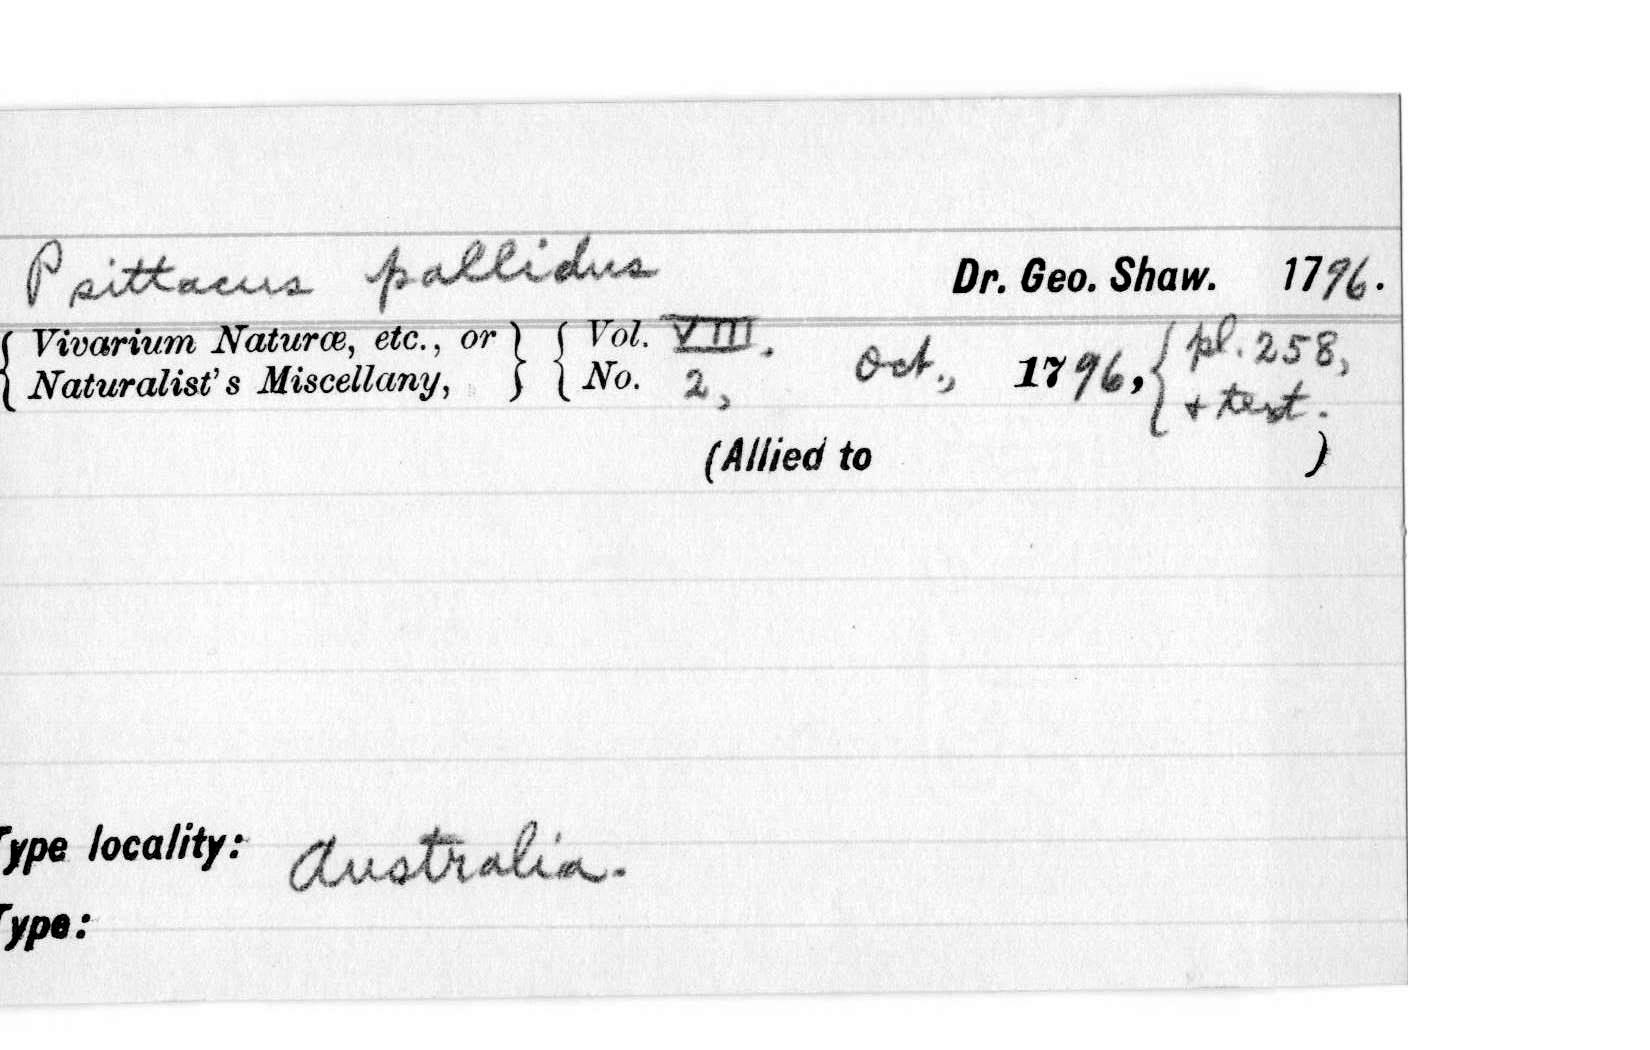 Psittacus pallidus Dr. Geo. Shaw. 1796.
{ Vivarium Naturæ, etc., or } { Vol. VIII. Oct., 1796, { pl. 258,
{ Naturalist's Miscellany, } { No. 2, { + text.
(Allied to )
Type locality: Australia.
Type: